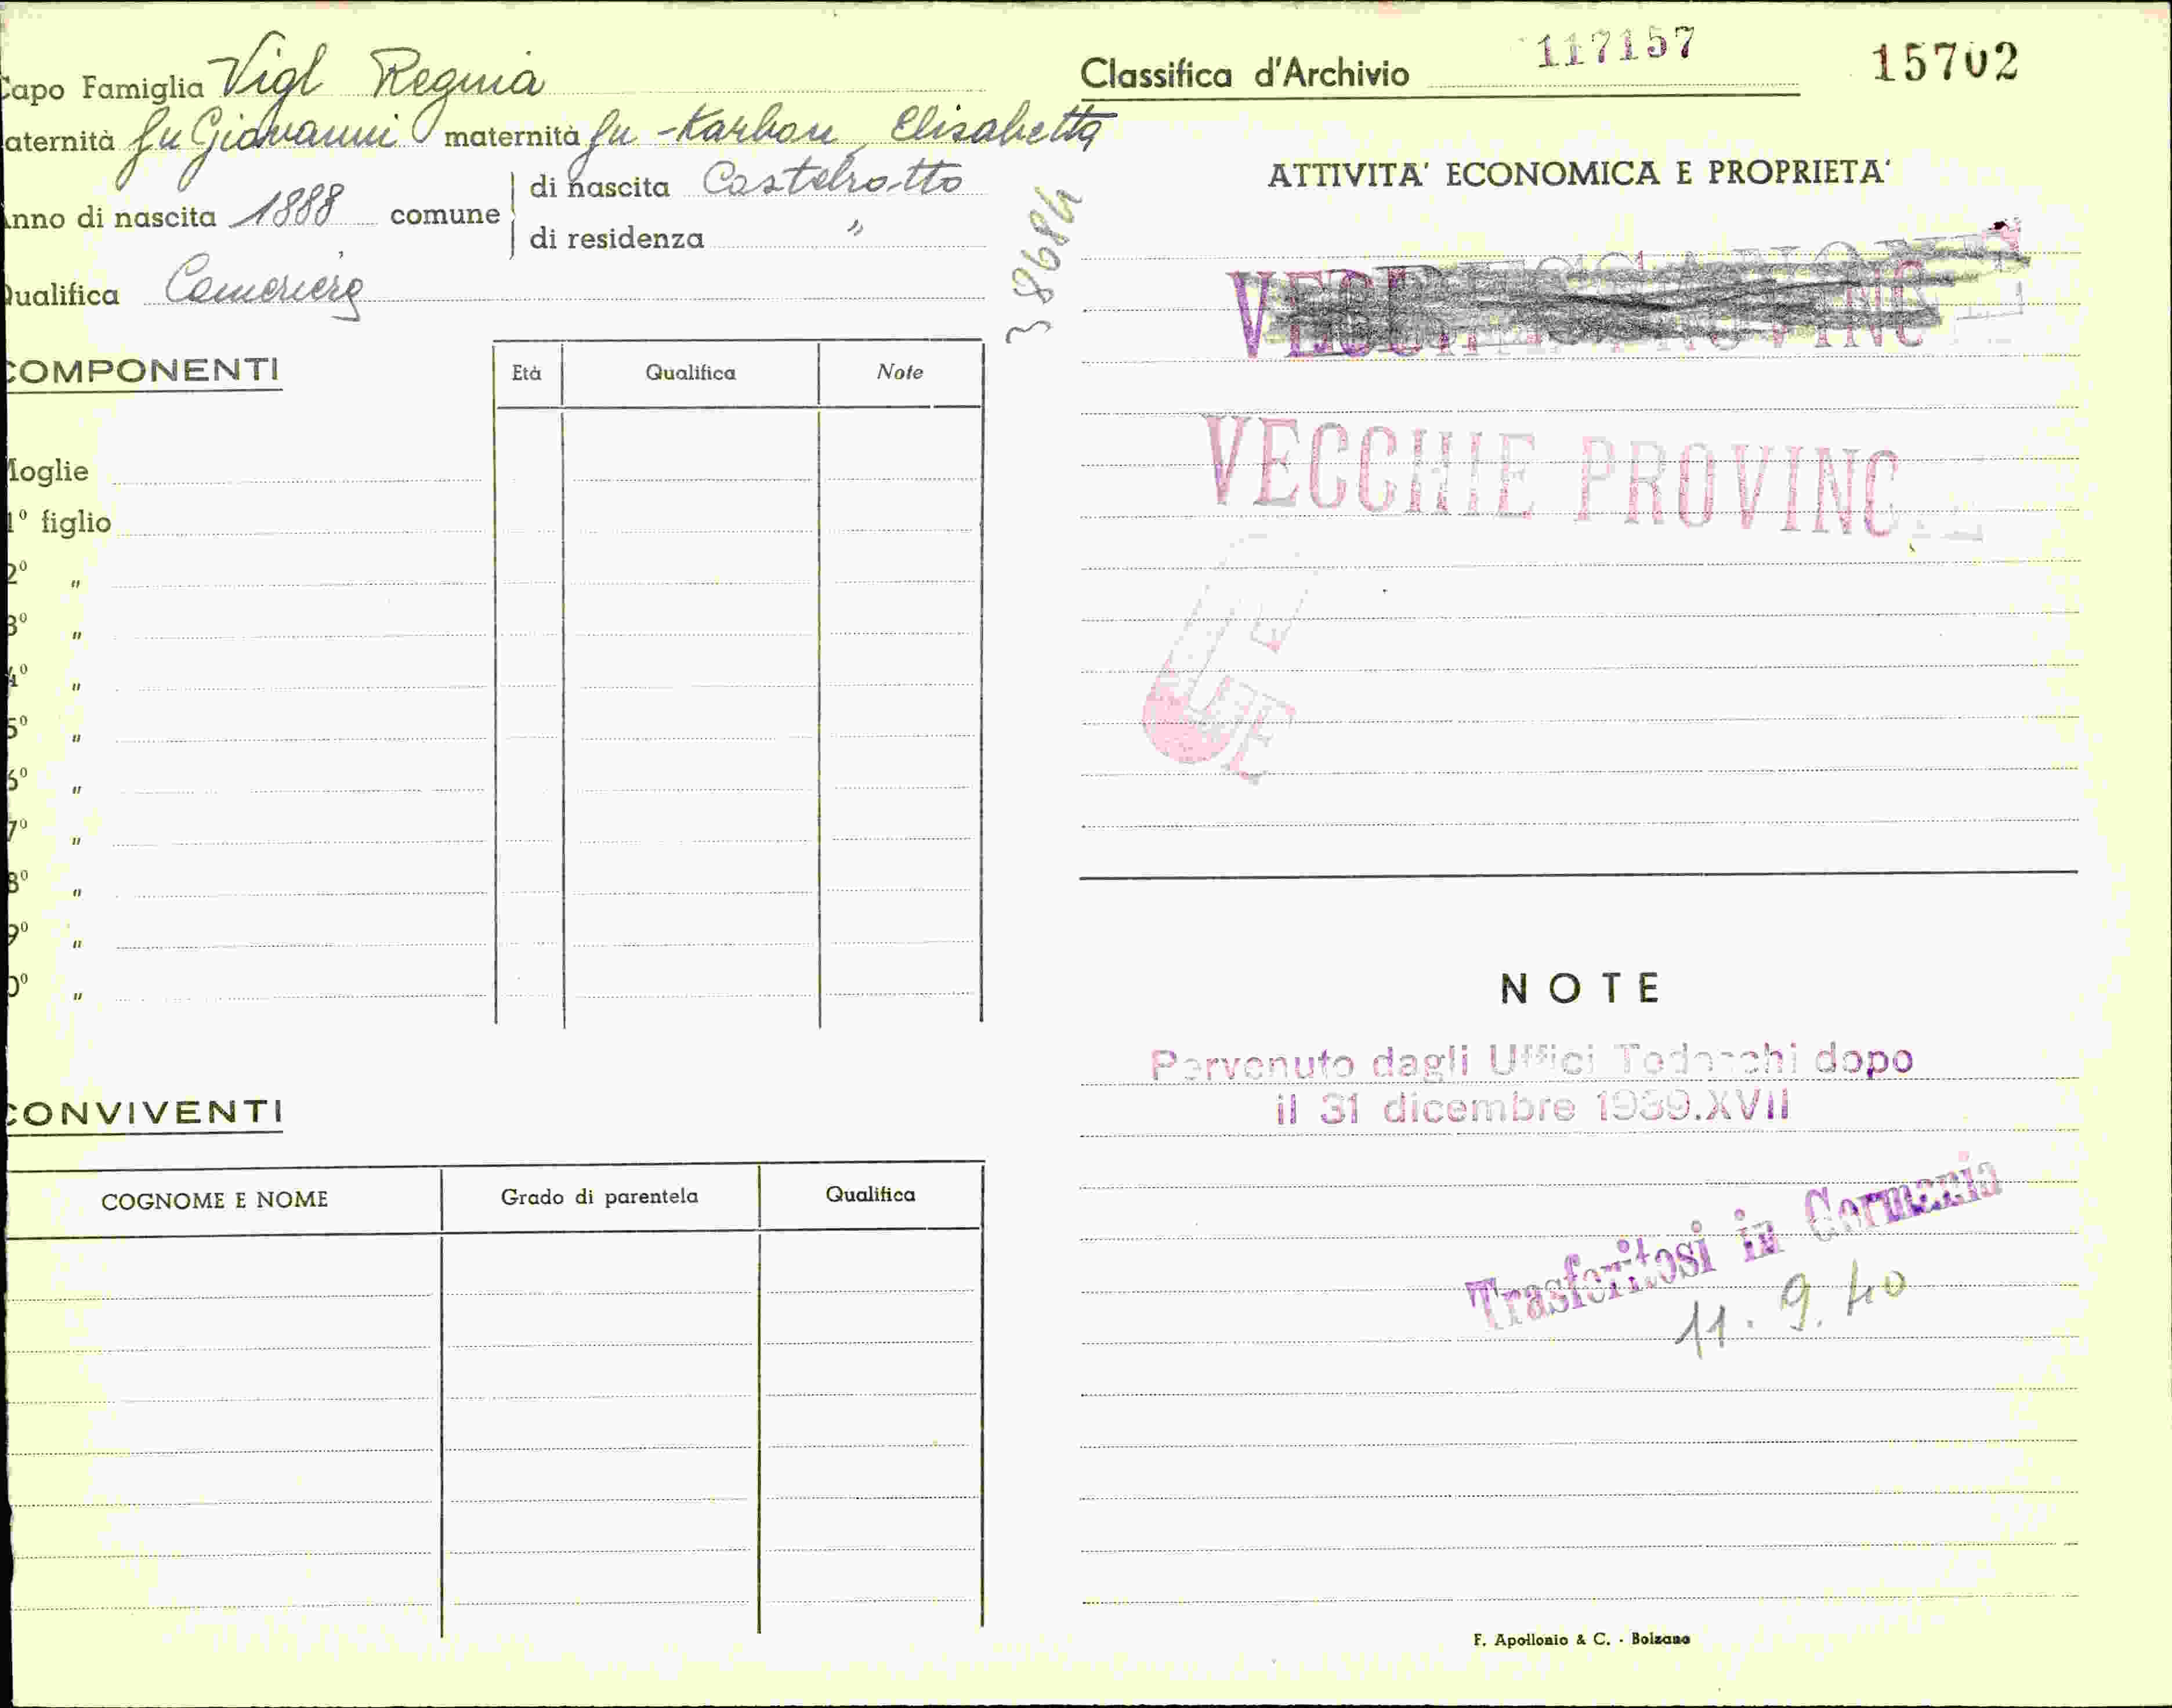 Capo Famiglia Vigl Regina
aternità fu Giovanni maternità fu Karbon Elisabetta
Anno di nascita 1888 comune di nascita Castelrotto
di residenza "
Qualifica Cameriera
38684
COMPONENTI
Età Qualifica Note
Moglie
1º figlio
2º "
3º "
4º "
5º "
6º "
7º "
8º "
9º "
0º "
CONVIVENTI
COGNOME E NOME Grado di parentela Qualifica
Classifica d'Archivio 117157 15702
ATTIVITA' ECONOMICA E PROPRIETA'
VECCHIE PROVINC
NOTE
Pervenuto dagli Uffici Tedeschi dopo
il 31 dicembre 1939.XVII
Trasferitosi in Germania
11.9.40
F. Apollonio & C. - Bolzano